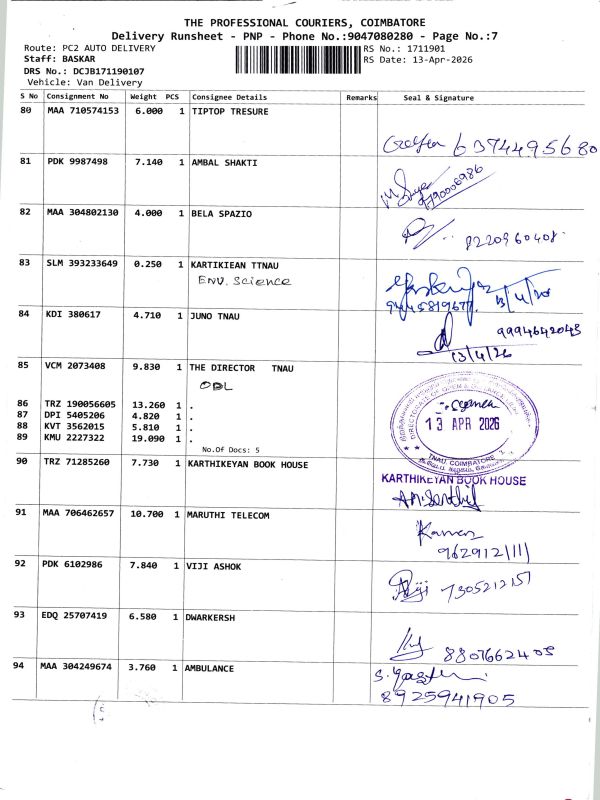 THE PROFESSIONAL COURIERS, COIMBATORE
Delivery Runsheet - PNP - Phone No.:9047080280 - Page No.:7
Route: PC2 AUTO DELIVERY
RS No.: 1711901
Staff: BASKAR
RS Date: 13-Apr-2026
DRS No.: DCJB171190107
Vehicle: Van Delivery
S No Consignment No Weight PCS Consignee Details Remarks Seal & Signature
80 MAA 710574153 6.000 1 TIPTOP TRESURE
6374495680
81 PDK 9987498 7.140 1 AMBAL SHAKTI
9790006986
82 MAA 304802130 4.000 1 BELA SPAZIO
8220960408
83 SLM 393233649 0.250 1 KARTIKIEAN TTNAU
ENV. Science
9445819677 13/4/26
84 KDI 380617 4.710 1 JUNO TNAU
9994642043
13/4/26
85 VCM 2073408 9.830 1 THE DIRECTOR TNAU
ODL
DIRECTORATE OF OPEN & DISTANCE
13 APR 2026
TNAU, COIMBATORE
86 TRZ 190056605 13.260 1 .
87 DPI 5405206 4.820 1 .
88 KVT 3562015 5.810 1 .
89 KMU 2227322 19.090 1 .
No.Of Docs: 5
90 TRZ 71285260 7.730 1 KARTHIKEYAN BOOK HOUSE
KARTHIKEYAN BOOK HOUSE
91 MAA 706462657 10.700 1 MARUTHI TELECOM
9629121111
92 PDK 6102986 7.840 1 VIJI ASHOK
Viji 7305212157
93 EDQ 25707419 6.580 1 DWARKERSH
8807662405
94 MAA 304249674 3.760 1 AMBULANCE
8925941905